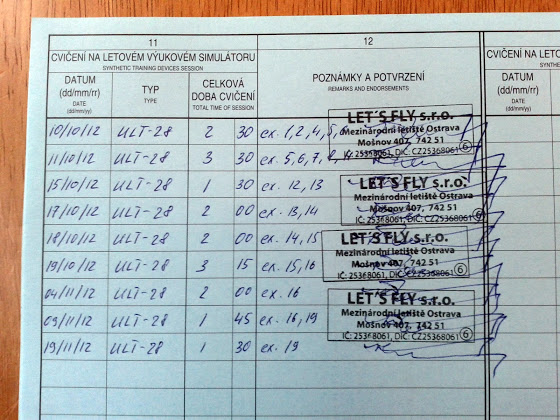 11 12
CVIČENÍ NA LETOVÉM VÝUKOVÉM SIMULÁTORU
SYNTHETIC TRAINING DEVICES SESSION
CVIČENÍ NA LETO
SYNTHE
DATUM (dd/mm/rr) DATE (dd/mm/yy)
TYP TYPE
CELKOVÁ DOBA CVIČENÍ TOTAL TIME OF SESSION
POZNÁMKY A POTVRZENÍ REMARKS AND ENDORSEMENTS
DATUM (dd/mm/rr) DATE (dd/mm/yy)
10/10/12 ULT-28 2 30 ex. 1, 2, 4, 5,
11/10/12 ULT-28 3 30 ex. 5, 6, 7,
15/10/12 ULT-28 1 30 ex. 12, 13
17/10/12 ULT-28 2 00 ex. 13, 14
18/10/12 ULT-28 2 00 ex. 14, 15
19/10/12 ULT-28 3 15 ex. 15, 16
04/11/12 ULT-28 2 00 ex. 16
09/11/12 ULT-28 1 45 ex. 16, 19
19/11/12 ULT-28 1 30 ex. 19
LET'S FLY s.r.o.
Mezinárodní letiště Ostrava
Mošnov 407, 742 51
IČ: 25368061, DIČ: CZ25368061 6
LET'S FLY s.r.o.
Mezinárodní letiště Ostrava
Mošnov 407, 742 51
IČ: 25368061, DIČ: CZ25368061 6
LET'S FLY s.r.o.
Mezinárodní letiště Ostrava
Mošnov 407, 742 51
IČ: 25368061, DIČ: CZ25368061 6
LET'S FLY s.r.o.
Mezinárodní letiště Ostrava
Mošnov 407, 742 51
IČ: 25368061, DIČ: CZ25368061 6